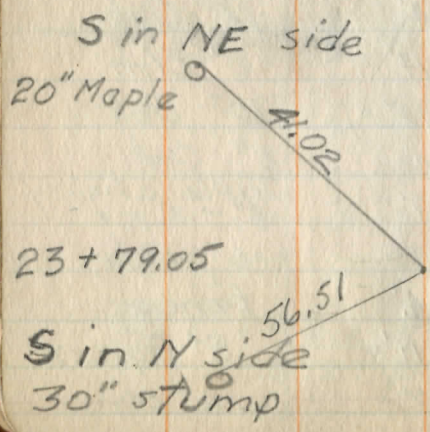 S in NE side
20" Maple
41.02
23 + 79.05
56.51
S in N side
30" stump